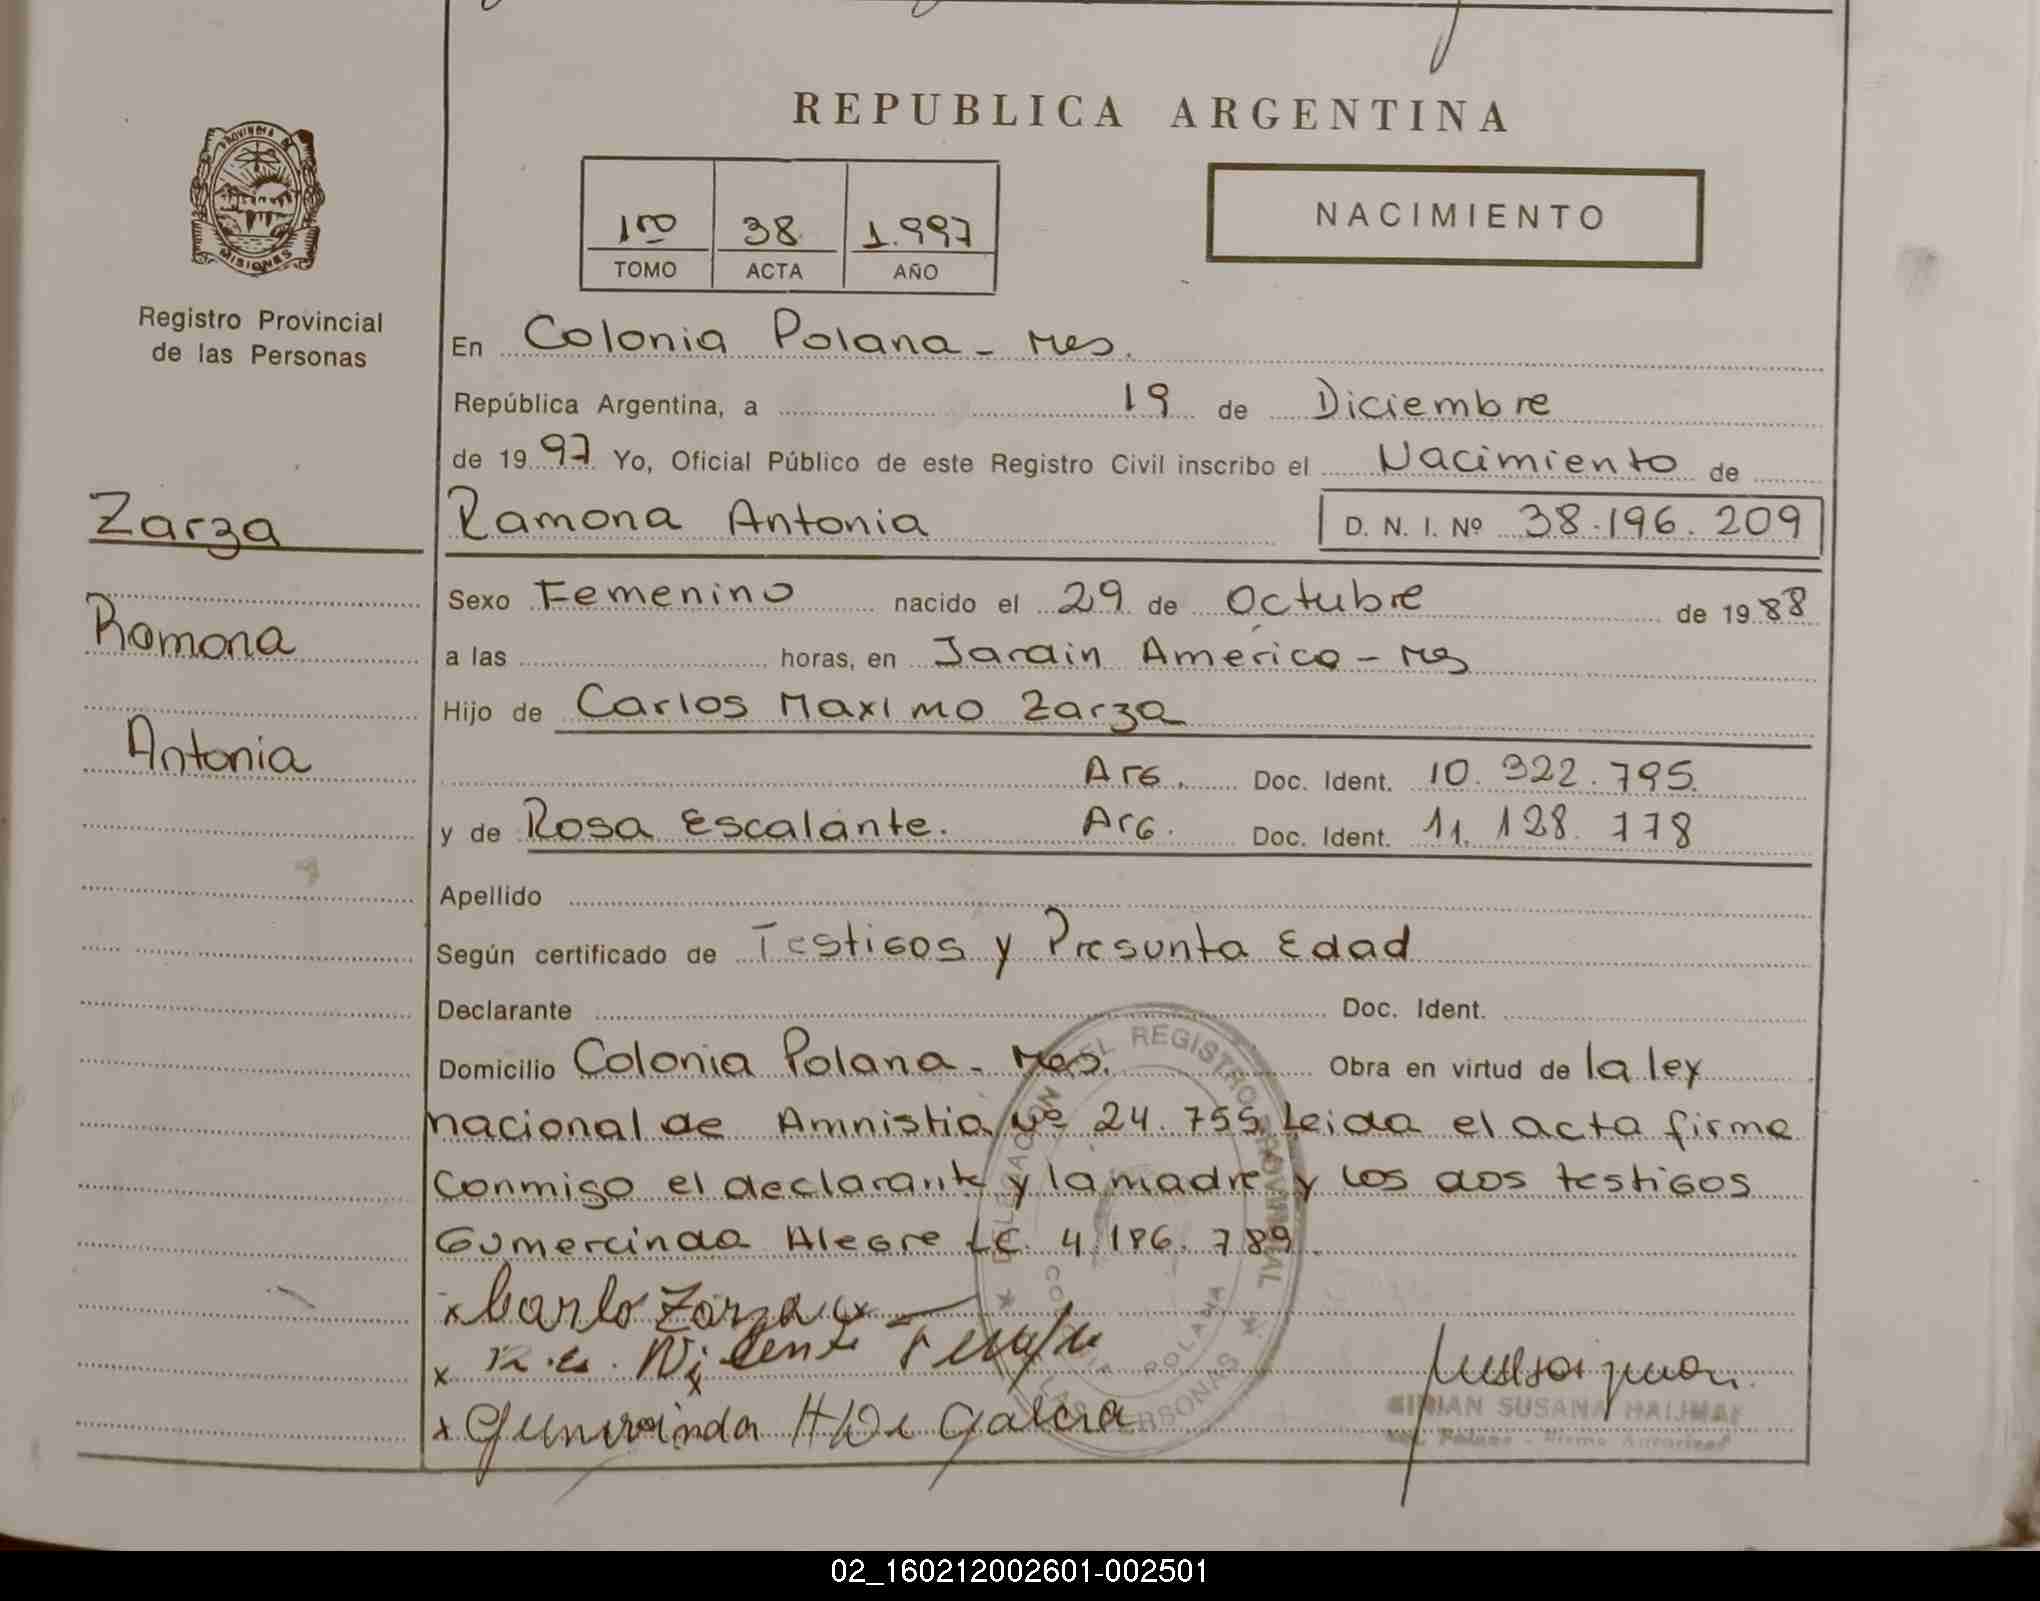 REPUBLICA ARGENTINA
PROVINCIA DE
MISIONES
Registro Provincial
de las Personas
1ro 38 1.997
TOMO ACTA AÑO
NACIMIENTO
En Colonia Polana - Mes.
República Argentina, a 19 de Diciembre
de 1997 Yo, Oficial Público de este Registro Civil inscribo el Nacimiento de
Zarza
Ramona
Antonia
Ramona Antonia D. N. I. Nº 38.196.209
Sexo Femenino nacido el 29 de Octubre de 1988
a las horas, en Jardin América - Mes
Hijo de Carlos Maximo Zarza
Arg. Doc. Ident. 10.322.795.
y de Rosa Escalante. Arg. Doc. Ident. 11.128.778
Apellido
Según certificado de Testigos y Presunta Edad
Declarante Doc. Ident.
Domicilio Colonia Polana - Mes. Obra en virtud de la ley
nacional de Amnistia Nº 24.755. Leida el acta firma
Conmigo el declarante y la madre y los dos testigos
Gumercinda Alegre LC. 4.186.789.
x Carlo Zarza
x
x
DELEGACION DEL REGISTRO PROVINCIAL
DE LAS PERSONAS
COLONIA POLANA
SUSANA
02_160212002601-002501